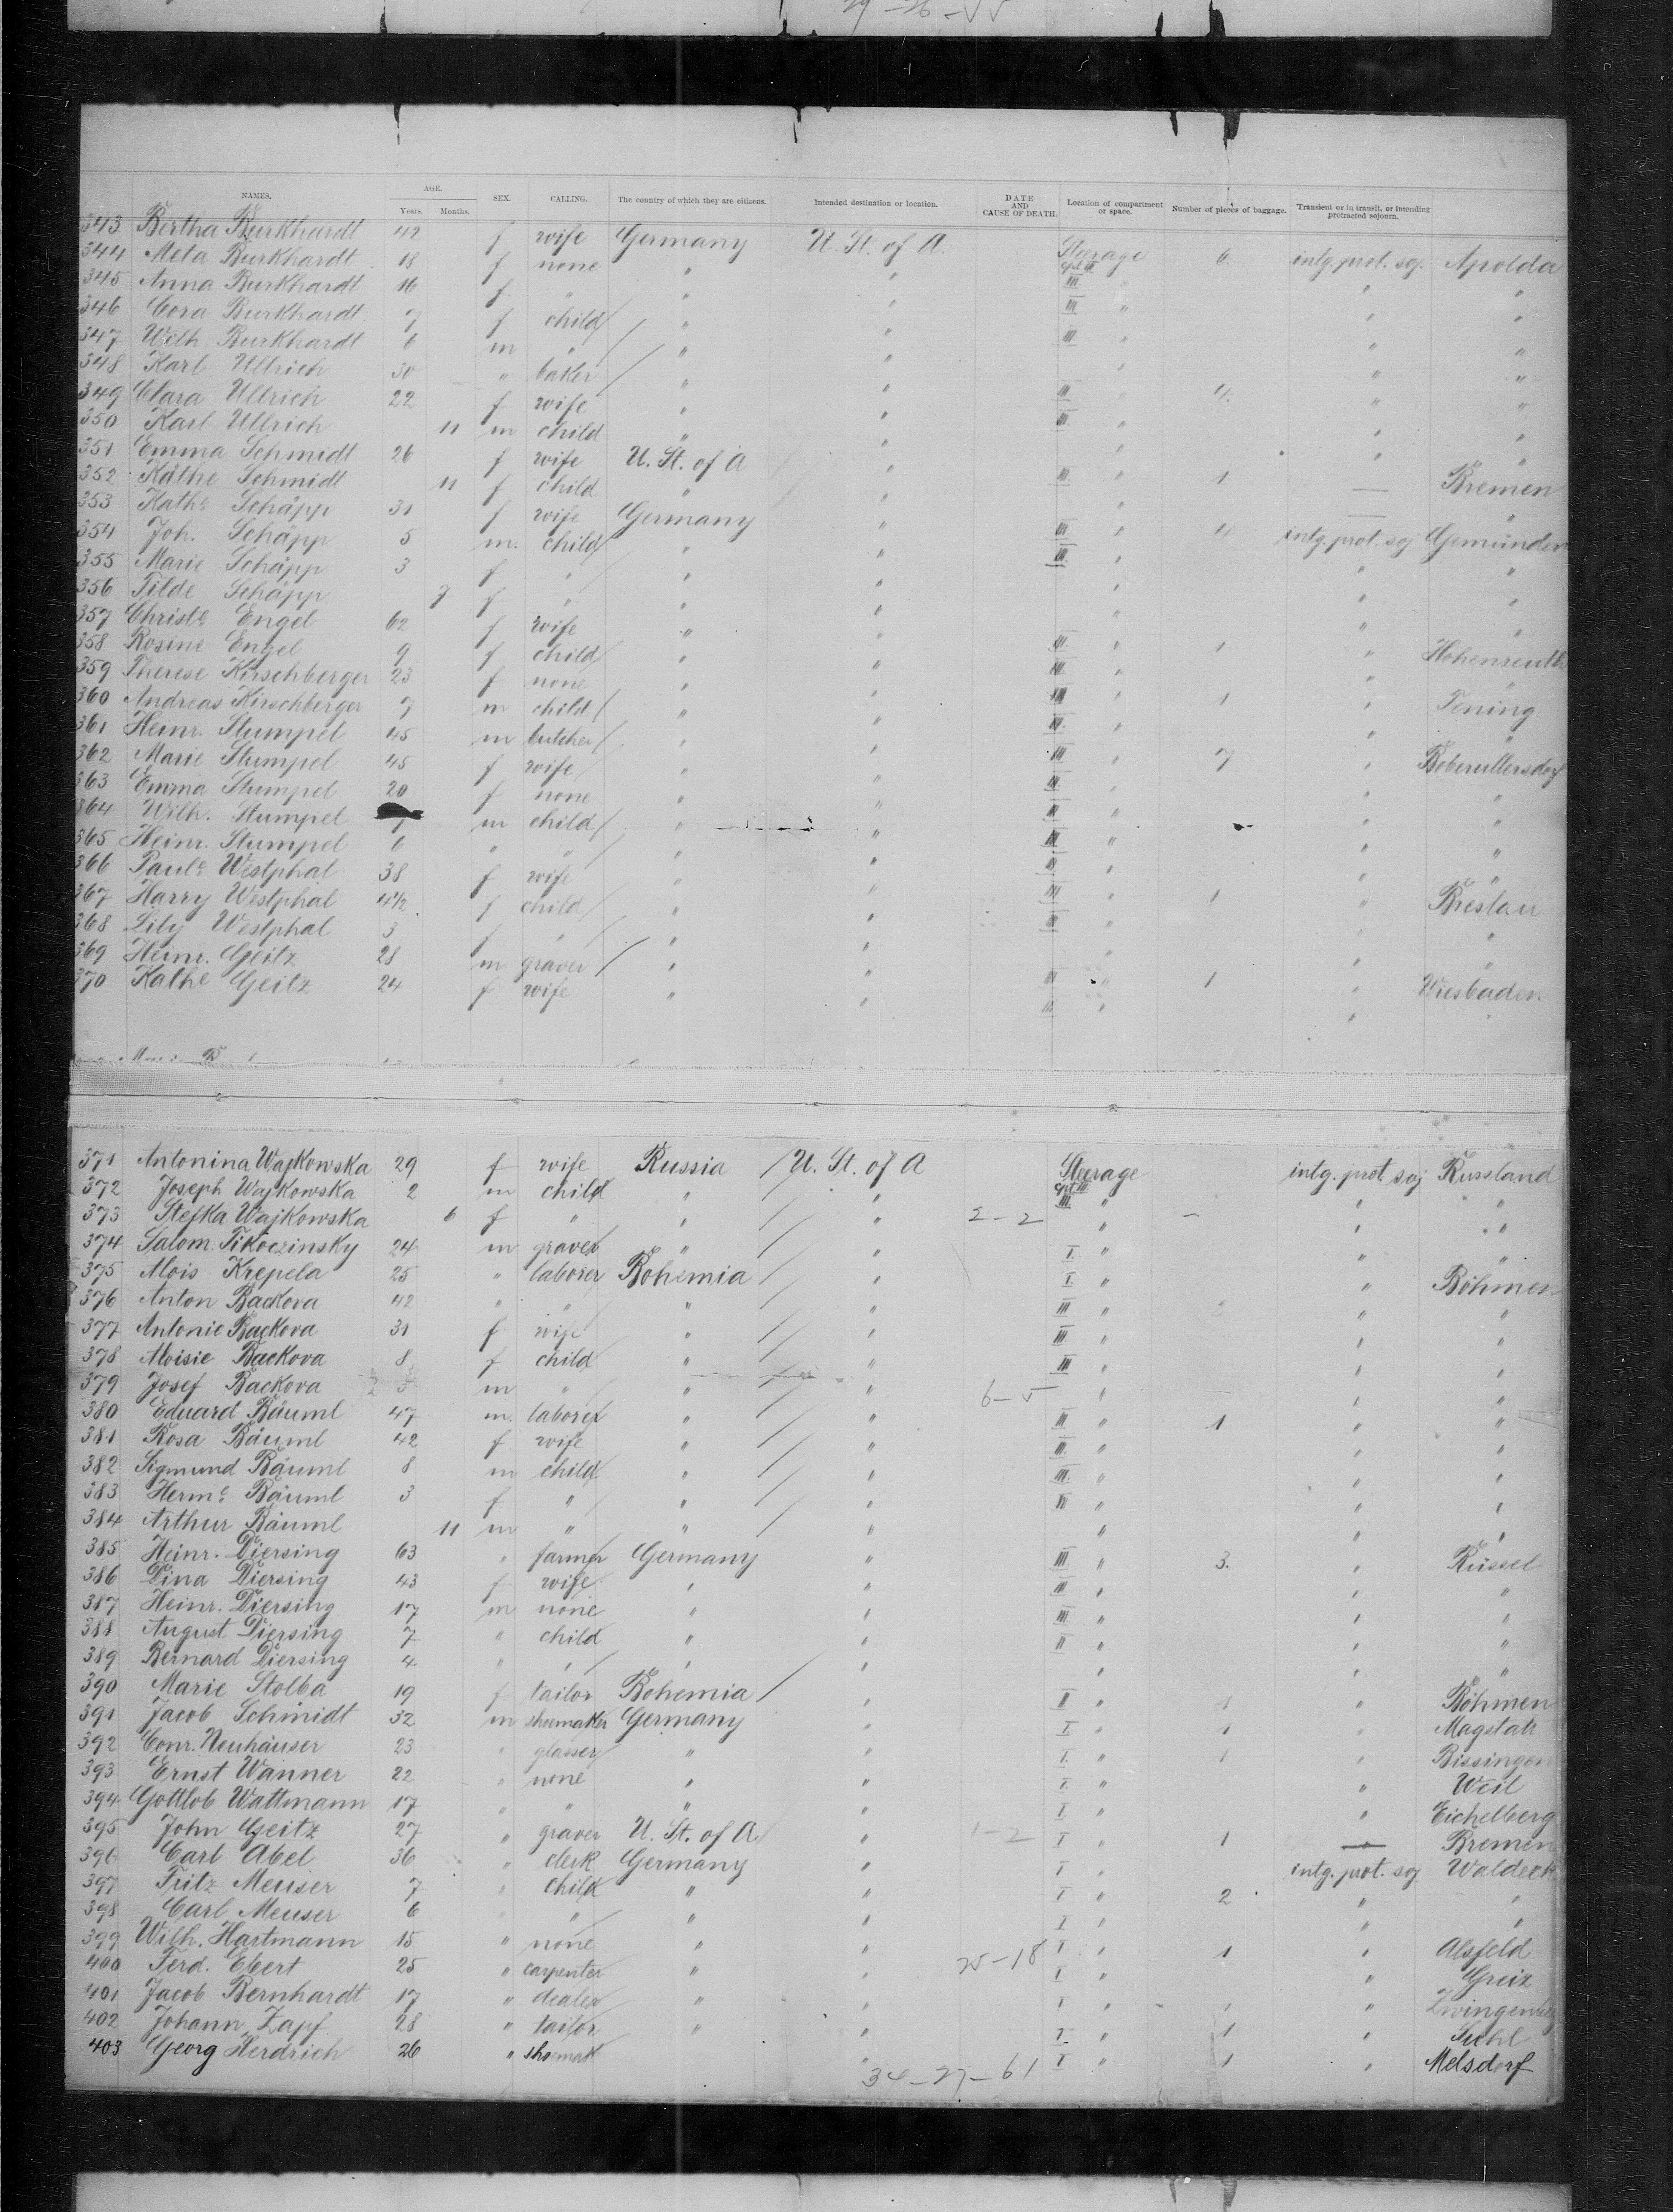 29-26-55
NAMES. AGE. Years. Months. SEX. CALLING. The country of which they are citizens. Intended destination or location. DATE AND CAUSE OF DEATH. Location of compartment or space. Number of pieces of baggage. Transient or in transit, or intending protracted sojourn.
343 Bertha Burkhardt 42 f wife Germany U. St. of A. Steerage Cpt III 6 intg. prot. soj. Apolda
344 Meta Burkhardt 18 f none " " III " " "
345 Anna Burkhardt 16 f " " " III " " "
346 Cora Burkhardt 7 f child " " III " " "
347 Wilh. Burkhardt 6 m " " " " " "
348 Karl Ullrich 30 " baker " " III " 4 " "
349 Clara Ullrich 22 f wife " " III " " "
350 Karl Ullrich 11 m child " " " " "
351 Emma Schmidt 26 f wife U. St. of A " III " 1 — Bremen
352 Käthe Schmidt 11 f child " " " — "
353 Kathe Schäpp 31 f wife Germany " III " 4 intg. prot. soj Gemünden
354 Joh. Schäpp 5 m. child " " III. " " "
355 Marie Schäpp 3 f " " " " " "
356 Tilde Schäpp 7 f " " " " " "
357 Christe Engel 62 f wife " " III " 1 " Hohenreuth
358 Rosine Engel 9 f child " " III " " "
359 Therese Kirschberger 23 f none " " III " 1 " Tening
360 Andreas Kirschberger 7 m child " " III. " " "
361 Heinr. Stumpel 45 m butcher " " III " 7 " Boberullersdorf
362 Marie Stumpel 45 f wife " " III " " "
363 Emma Stumpel 20 f none " " III " " "
364 Wilh. Stumpel 7 m child " " III " " "
365 Heinr. Stumpel 6 " " " " III " " "
366 Paule Westphal 38 f wife " " III " 1 " Breslau
367 Harry Westphal 4½ f child " " III " " "
368 Lily Westphal 3 f " " " " " "
369 Heinr. Geitz 28 m graver " " III " 1 " Wiesbaden
370 Kathe Geitz 24 f wife " " III " " "
371 Antonina Wajkowska 29 f wife Russia U. St. of A Steerage Cpt III intg. prot soj Russland
372 Joseph Wajkowska 2 m child " " III " " "
373 Stefka Wajkowska 6 f " " " 2-2 " — " "
374 Salom. Tikoczinsky 24 m graver " " I. " " "
375 Alois Krepela 25 " laborer Bohemia " I. " " Böhmen
376 Anton Backova 42 " " " " III " " "
377 Antonie Backova 31 f wife " " III " " "
378 Aloisie Backova 8 f child " " III " " "
379 Josef Backova m " " " 6-5 " " "
380 Eduard Bäuml 47 m. laborer " " III " 1 " "
381 Rosa Bäuml 42 f wife " " III. " " "
382 Sigmund Bäuml 8 m child " " III. " " "
383 Herme Bäuml 3 f " " " III " " "
384 Arthur Bäuml 11 m " " " " " "
385 Heinr. Diersing 63 " farmer Germany " III " 3. " Rüssel
386 Dina Diersing 43 f wife " " III " " "
387 Heinr. Diersing 17 m none " " III " " "
388 August Diersing 7 " child " " II " " "
389 Bernard Diersing 4 " " " " " " "
390 Marie Stolba 19 f tailor Bohemia " II " 1 " Böhmen
391 Jacob Schmidt 32 m shoemaker Germany " I. " 1 " Magstatt
392 Conr. Neuhäuser 23 " glasser " " I. " 1 " Bissingen
393 Ernst Wanner 22 " none " " I. " " Weil
394 Gottlob Wattmann 17 " " " " I. " " Eichelberg
395 John Geitz 27 " graver U. St. of A " 1-2 I " 1 — Bremen
396 Carl Abel 36 " clerk Germany " I " intg. prot. soj Waldeck
397 Fritz Meuser 7 " child " " I " 2 " "
398 Carl Meuser 6 " " " " I " " "
399 Wilh. Hartmann 15 " none " " 25-18 I " 1 " Alsfeld
400 Ferd. Ebert 25 " carpenter " " I " " Greiz
401 Jacob Bernhardt 17 " dealer " " I " " " Zwingenbg
402 Johann Zapf 28 " tailor " " I " 1 " Suhl
403 Georg Herdrich 26 " shoemak " I " 1 " Melsdorf
34-27-61